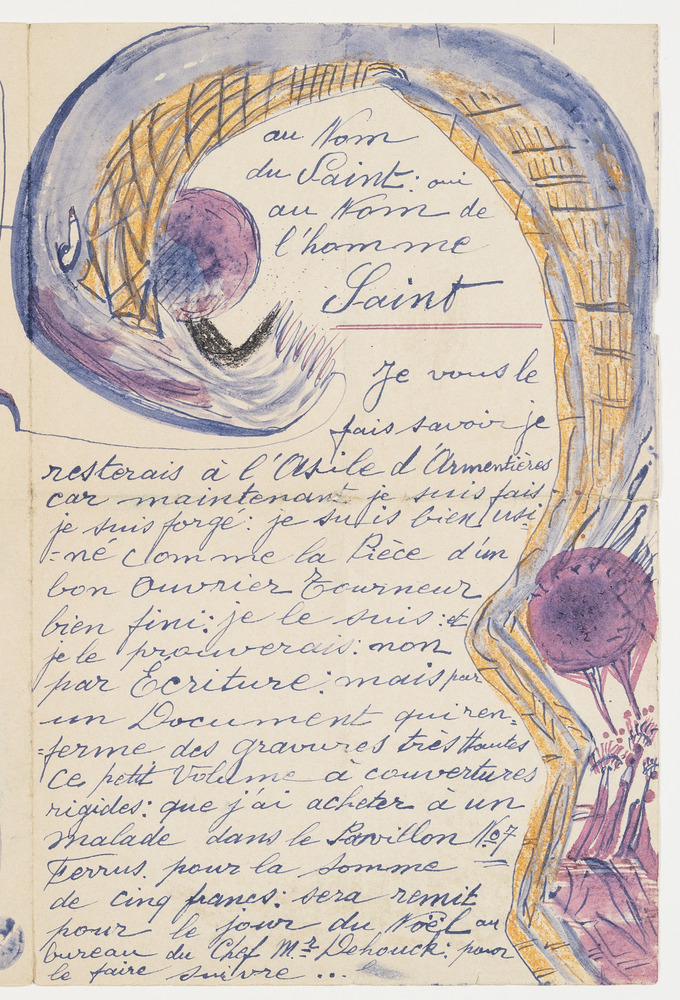 au Nom
du Saint: oui
au Nom de
l'homme
Saint
Je vous le
fais savoir je
resterais à l'Asile d'Armentières
car maintenant je suis fais-
je suis forgé: je suis bien usi-
-né comme la Pièce d'un
bon Ouvrier Tourneur
bien fini: je le suis: et
je le prouverais: non
par Écriture: mais par
un Document qui ren=
=ferme des gravures très Hautes
ce petit Volume à couvertures
rigides: que j'ai acheter à un
malade dans le Pavillon No 7
Ferrus. pour la somme
de cinq francs: sera remit
pour le jour du Noël au
bureau du Chef Mr Dehouck: pour
le faire suivre ...